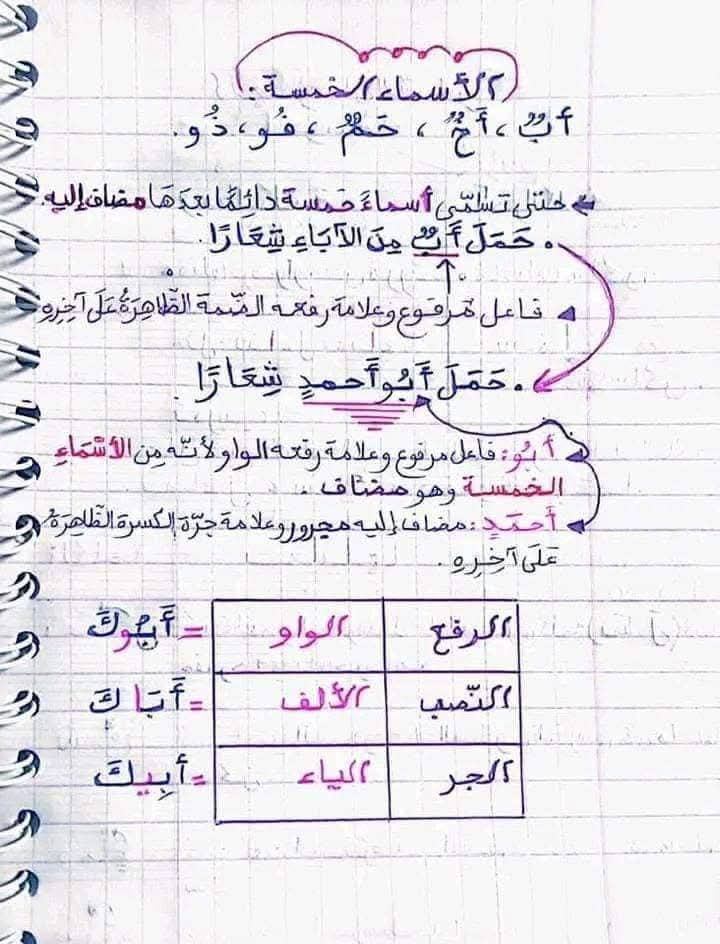 الأسماء الخمسة:
أبٌ، أَخٌ، حَمٌ، فُو، ذُو.
لكي تسمّى أسماءً خمسة دائِمًا بعدَهَا مضاف إليه.
. حَمَلَ أَبٌ مِنَ الآبَاءِ شِعَارًا.
فاعل مرفوع وعلامة رفعه الضّمة الظّاهِرَةُ عَلَى آخِرِهِ
. حَمَلَ أَبُو أَحمدٍ شِعَارًا.
أَبُو: فاعل مرفوع وعلامة رفعه الواو لأنّه مِن الأَسْمَاءِ
الخمسة وهو مضاف.
أَحمَدٍ: مضاف إليه مجرور وعلامة جرّه الكسرة الظّاهِرَةُ
عَلَى آخِرِهِ.
الرفع الواو = أَبُوكَ
النّصب الألف = أَبَاكَ
الجر الياء = أَبِيكَ